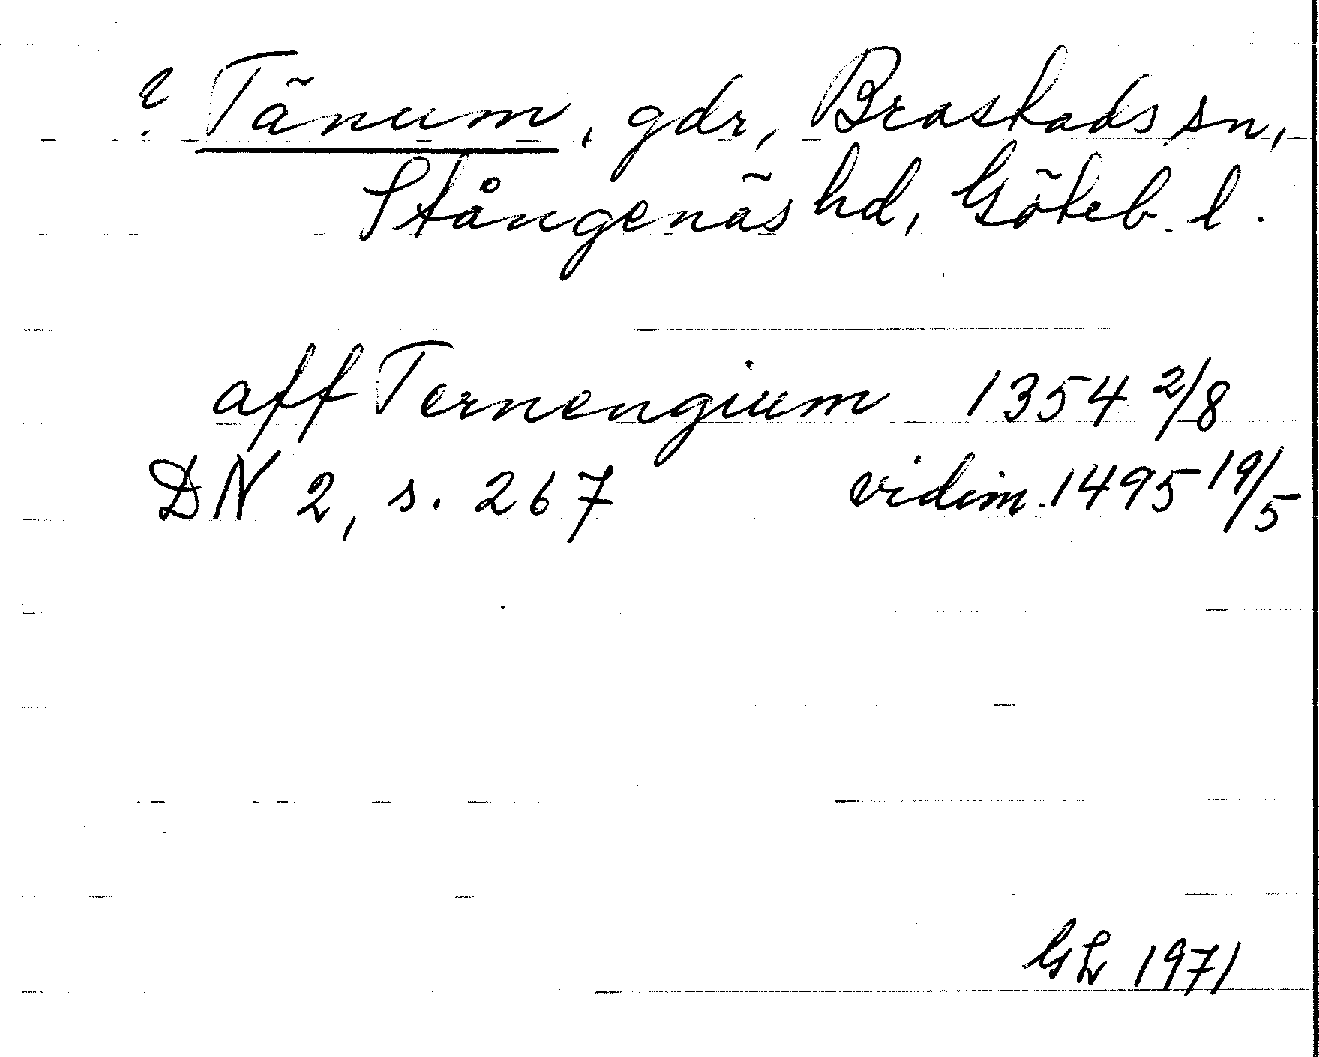 ? Tänum, gdr, Brastads sn,
Stångenäs hd, Göteb. l.
aff Ternengium 1354 2/8
DN 2, s. 267 vidim. 1495 19/5
GL 1971